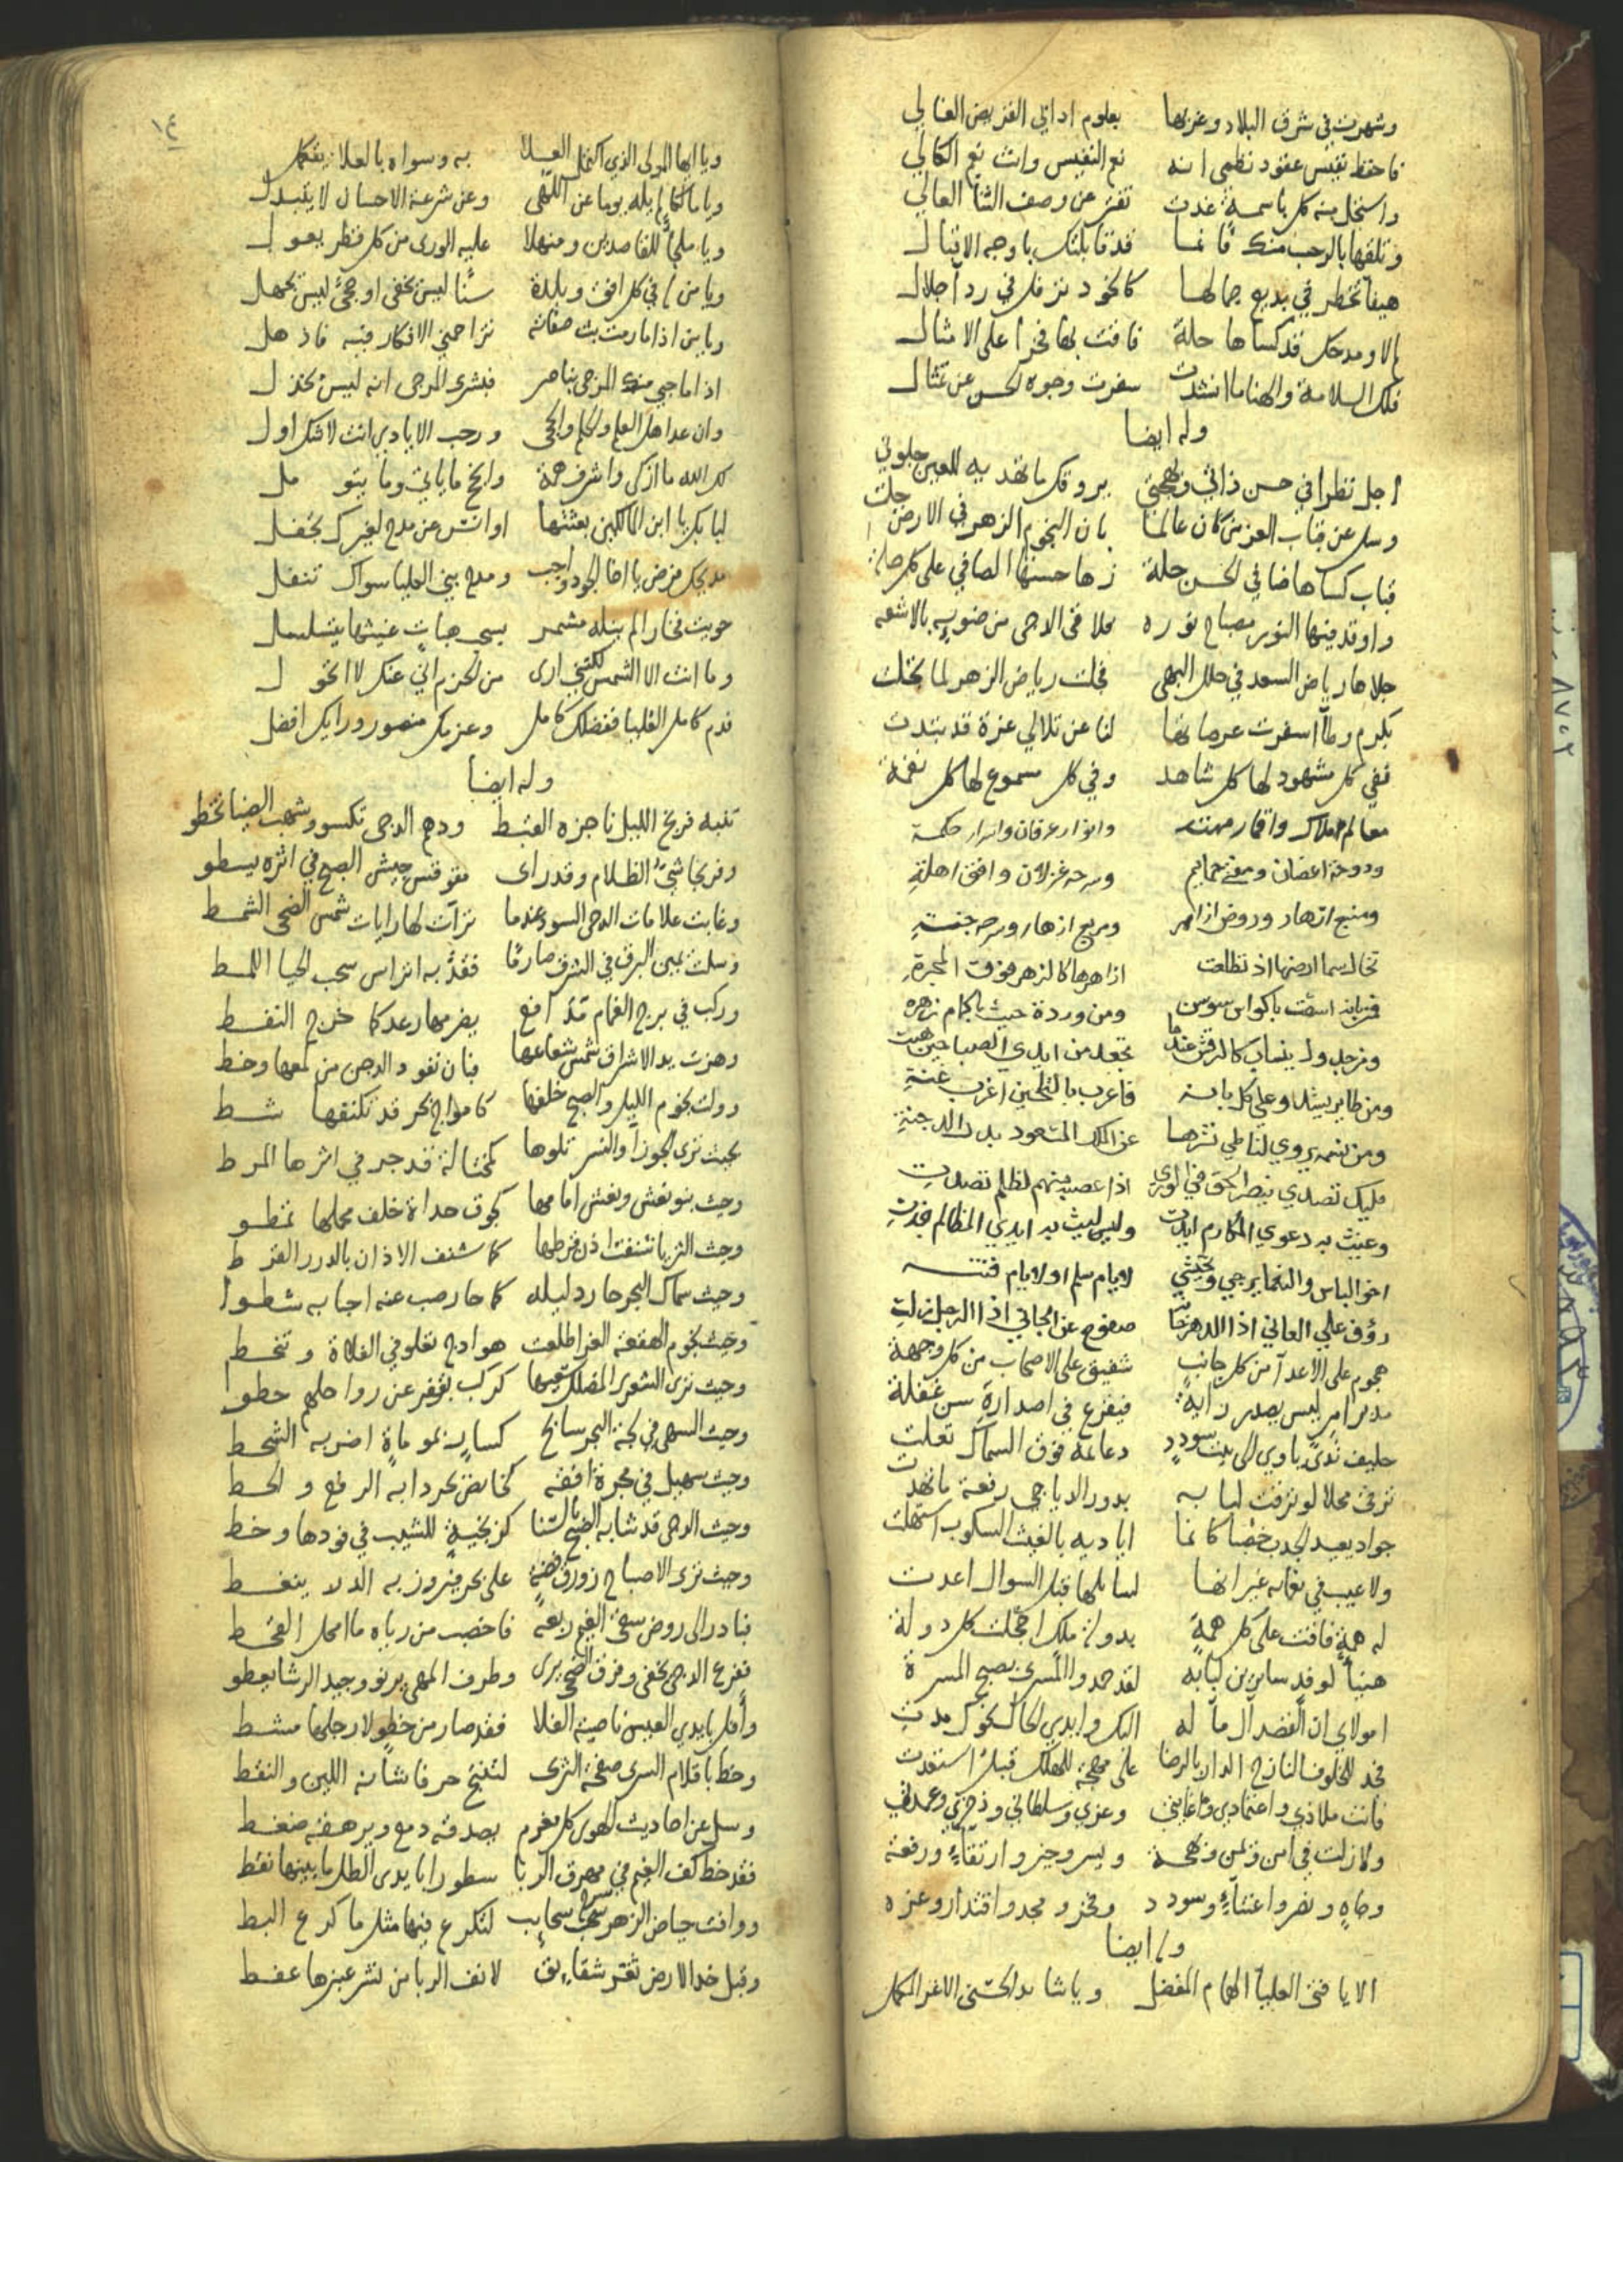 وشهرت في شرق البلاد وغربها بعلوم اداتي القريض الغالي
فاحفظ نفيس عقود نظمي انه نع النفيس وانت نع الكالي
واستجل منه كل باسمة غدت تفتر عن وصف الثنا العالي
وتلقها بالرحب منك فانما قد قابلتك باوجه الاقبال
هيفا تخطر في بديع جمالها كالخود ترفل في ردآ جلال
لم لا ومدحك قد كساها حلة فاقت بها فخرا على الامثال
فلك السلامة والهنا ما انشدت سفرت وجوه الحسن عن تمثال
وله ايضا
اجل نظرا في حسن ذاتي وبهجتي يروقك ما تهديه للعين جلوتي
وسل عن قباب العز من كان عالما بان النجوم الزهر في الارض حلت
قباب كساها ضافي الحسن حلة زها حسنها الصافي على كل حلة
واوقد فيها النور مصباح نوره فلا في الدجى من ضويه بالاشعه
جلاها رياض السعد في حلل البهى فخلت رياض الزهر لما تجلت
بكرم ولما اسفرت عرصاتها لنا عن تلالي غرة قد تبدت
ففي كل مشهود لها كل شاهد وفي كل مسموع لها كل نغمة
معالم املاك واقمار وانوار عرفان واسرار حكمة
ودوحة اغصان ومغنى حمايم وسرحة غزلان وافق اهلة
ومنبع انهار وروض ازاهر ومربع ازهار وسرحة جنة
تخال سما ارضها اذ تطلعت ازاهرها كالزهر فوق المجرة
باكواس سوسن ومن وردة حيت باكمام زهره
ومن جدول ينساب كالرقش عندما تجعد من ايدي الصبا حين هبت
ومن طاير يشدو على كل بانه فاعرب بالتلحين اغرب غنة
ومن نسمة يروي لنا طي نشرها عن الملك المسعود بدر الدجنة
مليك تصدي بنصر الحق في الورى اذا عصبة منهم لظلم تصدت
وغيث به دعوى المكارم ايدت وليس لليث به ايدي المظالم فدت
اخو الباس والنعما يرجى ويختشي لايام سلم او لايام فتنه
رؤف على العاني اذا الدهر صفوح عن الجاني اذا الرجل زلت
هجوم على الاعدآ من كل جانب شفيق على الاصحاب من كل وجهة
مدبر امر ليس يصدر رايه فيفزع في اصداره سن غفلة
حليف ندى ياوي الى بيت سودد دعائمه فوق السماك تعلت
ترقى محلا لو ترقت لبابه بدور الدياجي رفعة ما تهدت
جواد يعيد الجدب خصبا كانما اياديه بالغيث السكوب استهلت
ولا عيب في نعماه غير انها لسايلها قبل السوال اعدت
له همة فاقت على كل همة بدولة ملك اخجلت كل دولة
هنيأ لوفد ساير بن لبابه لقد حمدوا المسرى بصبح المسرة
امولاي ان القصد آل مآ له اليك وايدي الحال نحوك مدت
فجد للخلوف النازح الدار بالرضا على مهجة للهلك قبلك استعدت
فانت ملاذي واعتمادي وغايتي وعزي وسلطاني وذخري وعمدتي
ولا زلت في امن ويمن وبهجة ويسر وخير وارتقاء ورفعة
وجاه ونصر واعتناء وسودد وفخر ومجد واقتدار وعزه
وله ايضا
الا يا فتى العليا الهمام المفضل ويا شايد الحسنى الاغر المكمل
١٤
ويا ايها المولى الذي اكتفل العلا به وسواه بالعلا يتفكل
ويا مالكا لم يله يوما عن اللهى وعن شرعة الاحسان لا يتبدل
ويا ملجأ للقاصدين ومنهلا عليه الورى من كل قطر يعول
ويا من له في كل افق وبلدة سنا ليس يخفى او حجى ليس يجهل
ويا من اذا ما رمت بث صفاته تزاحمني الافكار فيه فاذهل
اذا ما حبى منه المرجى بناصر فبشرى المرجى انه ليس يخذل
وان عد اهل العلم والحلم والحجى ورحب الايادي انت لاشك اول
لك الله ما ازكى واشرف همة وانجح ما ياتي وما يتومل
لبابك يا ابن الاكملين بعثتها اوانس عن مدح لغيرك تجفل
مديحك فرض يا اخا الجود واجب ومدح بني العليا سواك تنفل
حويت فخارا لم ينله مشمر بسحب هبات غيثها يتسلسل
وما انت الا الشمس لكنني ارى من الحزم اني عنك لا اتحول
فدم كامل العليا ففضلك كامل وعزمك منصور ورايك افضل
وله ايضا
تنبه فزنج الليل ناجزه القبط ودهم الدجى تكسو وشهب الضيا تخطو
وفر نجاشي الظلام وقد راى مقوقس جيش الصبح في اثره يسطو
وغابت علامات الدجى السود عندما تراءت لها رايات شمس الضحى الشمط
وسلت يمين البرق في الشرق صارما فقد به اتراس سحب الحيا اللمط
وركب في برج الغمام مدافع يضرمها رعد كما خرج النفط
وهزت يد الاشراق شمس شعاعها فبان نفود الدجن من لمعها وخط
وولت نجوم الليل والصبح خلفها كامواج بحر قد تكنفها شط
بحيث ترى الجوزا والنسر تلوها كمختالة قد جر في اثرها المرط
وحيث بنو نعش ونعش امامها كجوق حداة خلف محملها تمطو
وحيث الثريا شنفت اذن قرطها كما شنف الاذان بالدرر القرط
وحيث سماك البحر حار دليله كما حار صب عنه احبابه شطوا
وحيث نجوم الهقعة الغر اطلعت هوادج تعلو في الفلاة وتنحط
وحيث ترى الشعرى كركب بقفر عن رواحلهم حطوا
وحيث السهى في لجة البحر سانح كسار بموماة اضر به الشحط
وحيث سهيل في مجرة افقه كخائض بحر دابه الرفع والحط
وحيث الدجى قد شابه الصبح بالسنا كزنجية للشيب في فودها وخط
وحيث ترى الاصباح زورق فضة على بحر فيروز به الدلا ينغط
فبادر الى روض سقى الغيم ربعه فاخصب من رباه ما امحل القحط
ففرع الدجى يخفى وفرق الضحى يرى وطرف المهى يرنو وجيد الرشا يعطو
وافل بايدي العيس ناصية الفلا فقد صار من خطو لارجلها مشط
وخط باقلام السرى صفحة الثرى لتنتج حرفا شانه اللين والنقط
وسل عن احاديث الهوى كل مغرم يصدقه دمع ويرهقه ضغط
فقد خط كف الغيم في مهرق الربا سطورا بايدي الطل ما بينها نقط
ووافت حياض الزهر سحب سحايب لتكرع فيها مثل ما كرع البط
وقبل خد الارض ثغر شقايق لانف الربا من نشر عبيرها عفط